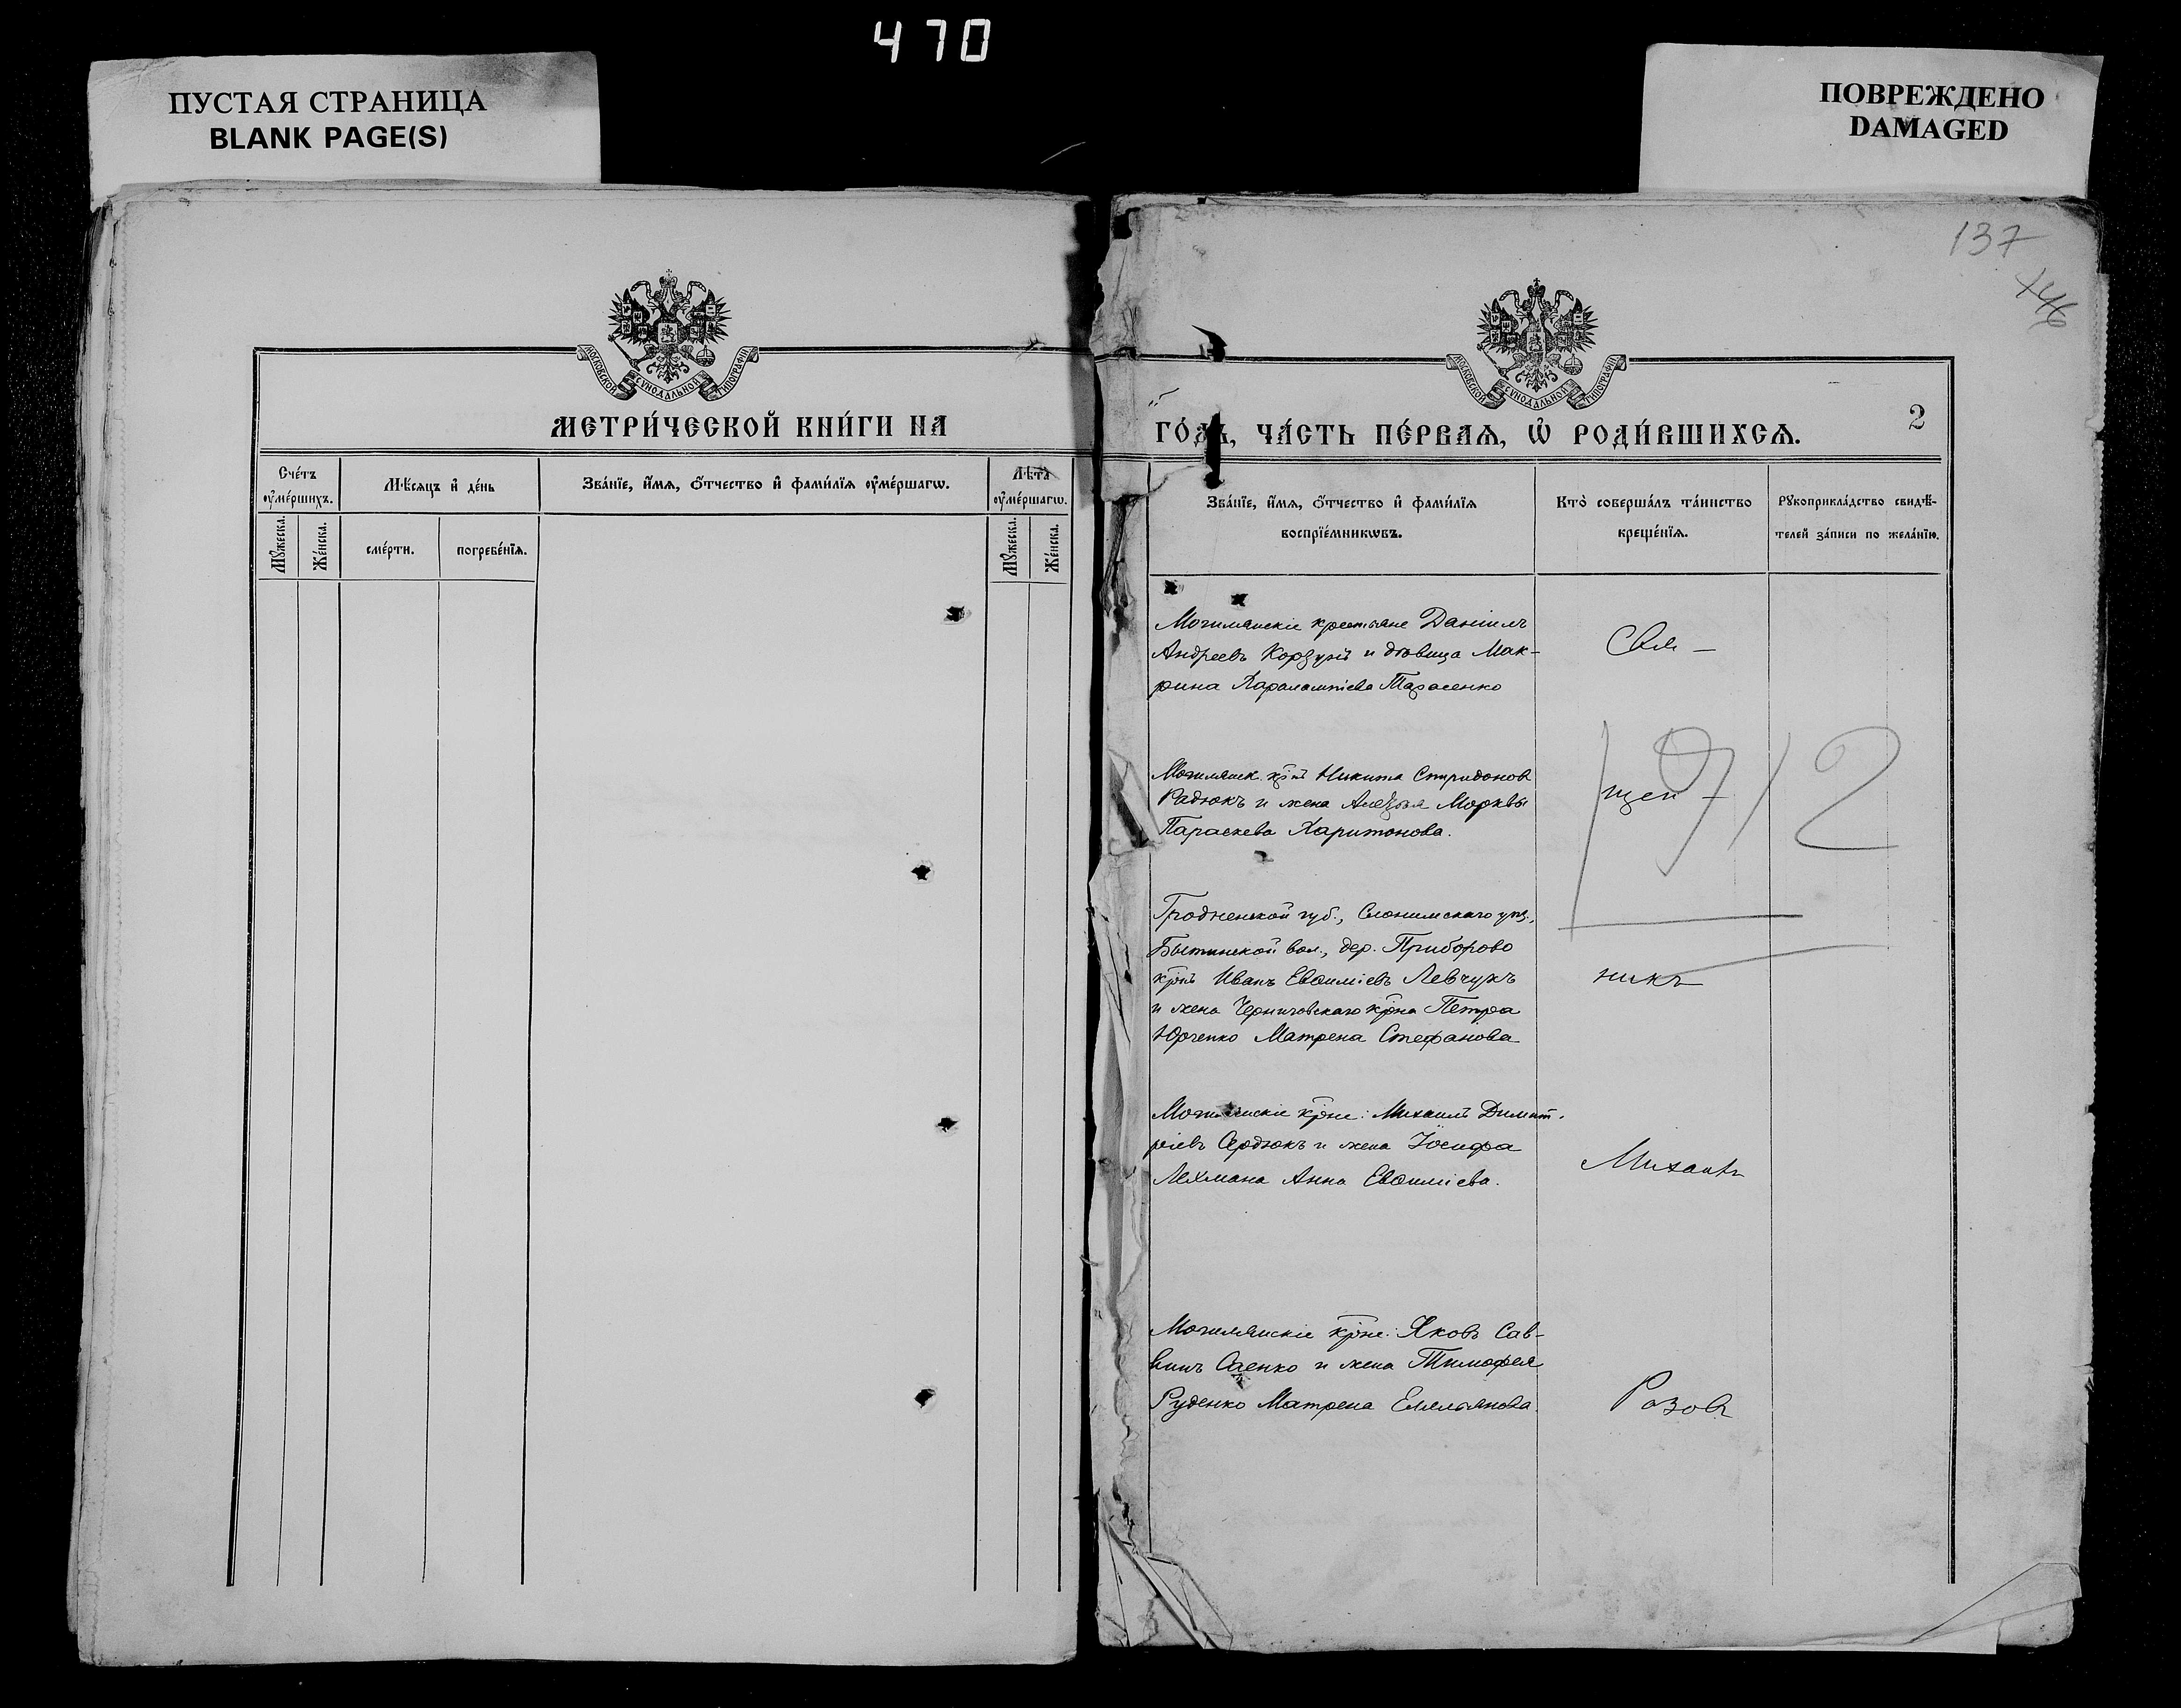 470
ПУСТАЯ СТРАНИЦА
BLANK PAGE(S)
ПОВРЕЖДЕНО
DAMAGED
137
МОСКОВСКОЙ СѴНОДАЛЬНОЙ ТИПОГРАФІИ
МЕТРИ́ЧЕСКОЙ КНИ́ГИ НА
Сче́тъ ᲂу҆ме́ршихъ.
Мѣ́сяцъ и҆ де́нь
Зва́нїе, и҆́мѧ, ѻ҆́тчество и҆ фами́лїѧ ᲂу҆ме́ршагѡ.
Лѣ́та ᲂу҆ме́ршагѡ.
Мꙋ́жеска.
Же́нска.
сме́рти.
погребе́нїѧ.
Мꙋ́жеска.
Же́нска.
МОСКОВСКОЙ СѴНОДАЛЬНОЙ ТИПОГРАФІИ
ГО́ДЪ, ЧА́СТЬ ПЕ́РВАѦ, Ѡ҆ РОДИ́ВШИХСѦ.
2
Зва́нїе, и҆́мѧ, ѻ҆́тчество и҆ фами́лїѧ
воспрїе́мникѡвъ.
Кто̀ соверша́лъ та́инство
креще́нїѧ.
Рꙋкоприкла́дство свидѣ́-
телей за́писи по жела́нїю.
Могилянскіе крестьяне Даніилъ
Андреевъ Корзунъ и дѣвица Мак-
рина Харалампіева Тарасенко
Свя-
Могилянск. кр̃нъ Никита Спиридонов
Радюкъ и жена Морквы
Параскева Харитонова.
щен-
1912
Гродненской губ., Слонимскаго уѣз.,
Бытинской вол., дер. Приборово
кр̃нъ Иванъ Евѳиміевъ Левчукъ
и жена Черниговскаго кр̃на Петра
Юрченко Матрена Стефанова
никъ
Могилянскіе кр̃не: Михаилъ Димит-
ріевъ Сердюкъ и жена Іосифа
Лехмана Анна Евѳиміева.
Михаилъ
Могилянскіе кр̃не: Яковъ Сав-
винъ Саенко и жена Тимофея
Руденко Матрена Емельянова.
Розов